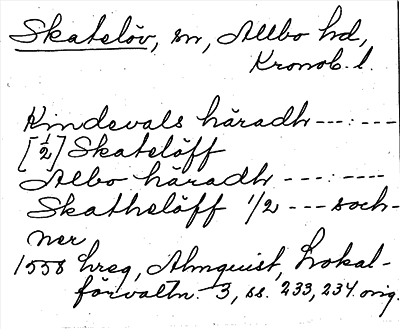 Skatelöv, sn, Allbo hd,
Kronob. l.
Kindevals häradh ---:---
[½] Skatelöff
Albo häradh ---:----
Skathelöff 1/2 --- soch-
ner
1558 hreg, Almquist, Lokal-
förvaltn. 3, ss. 233, 234 orig.